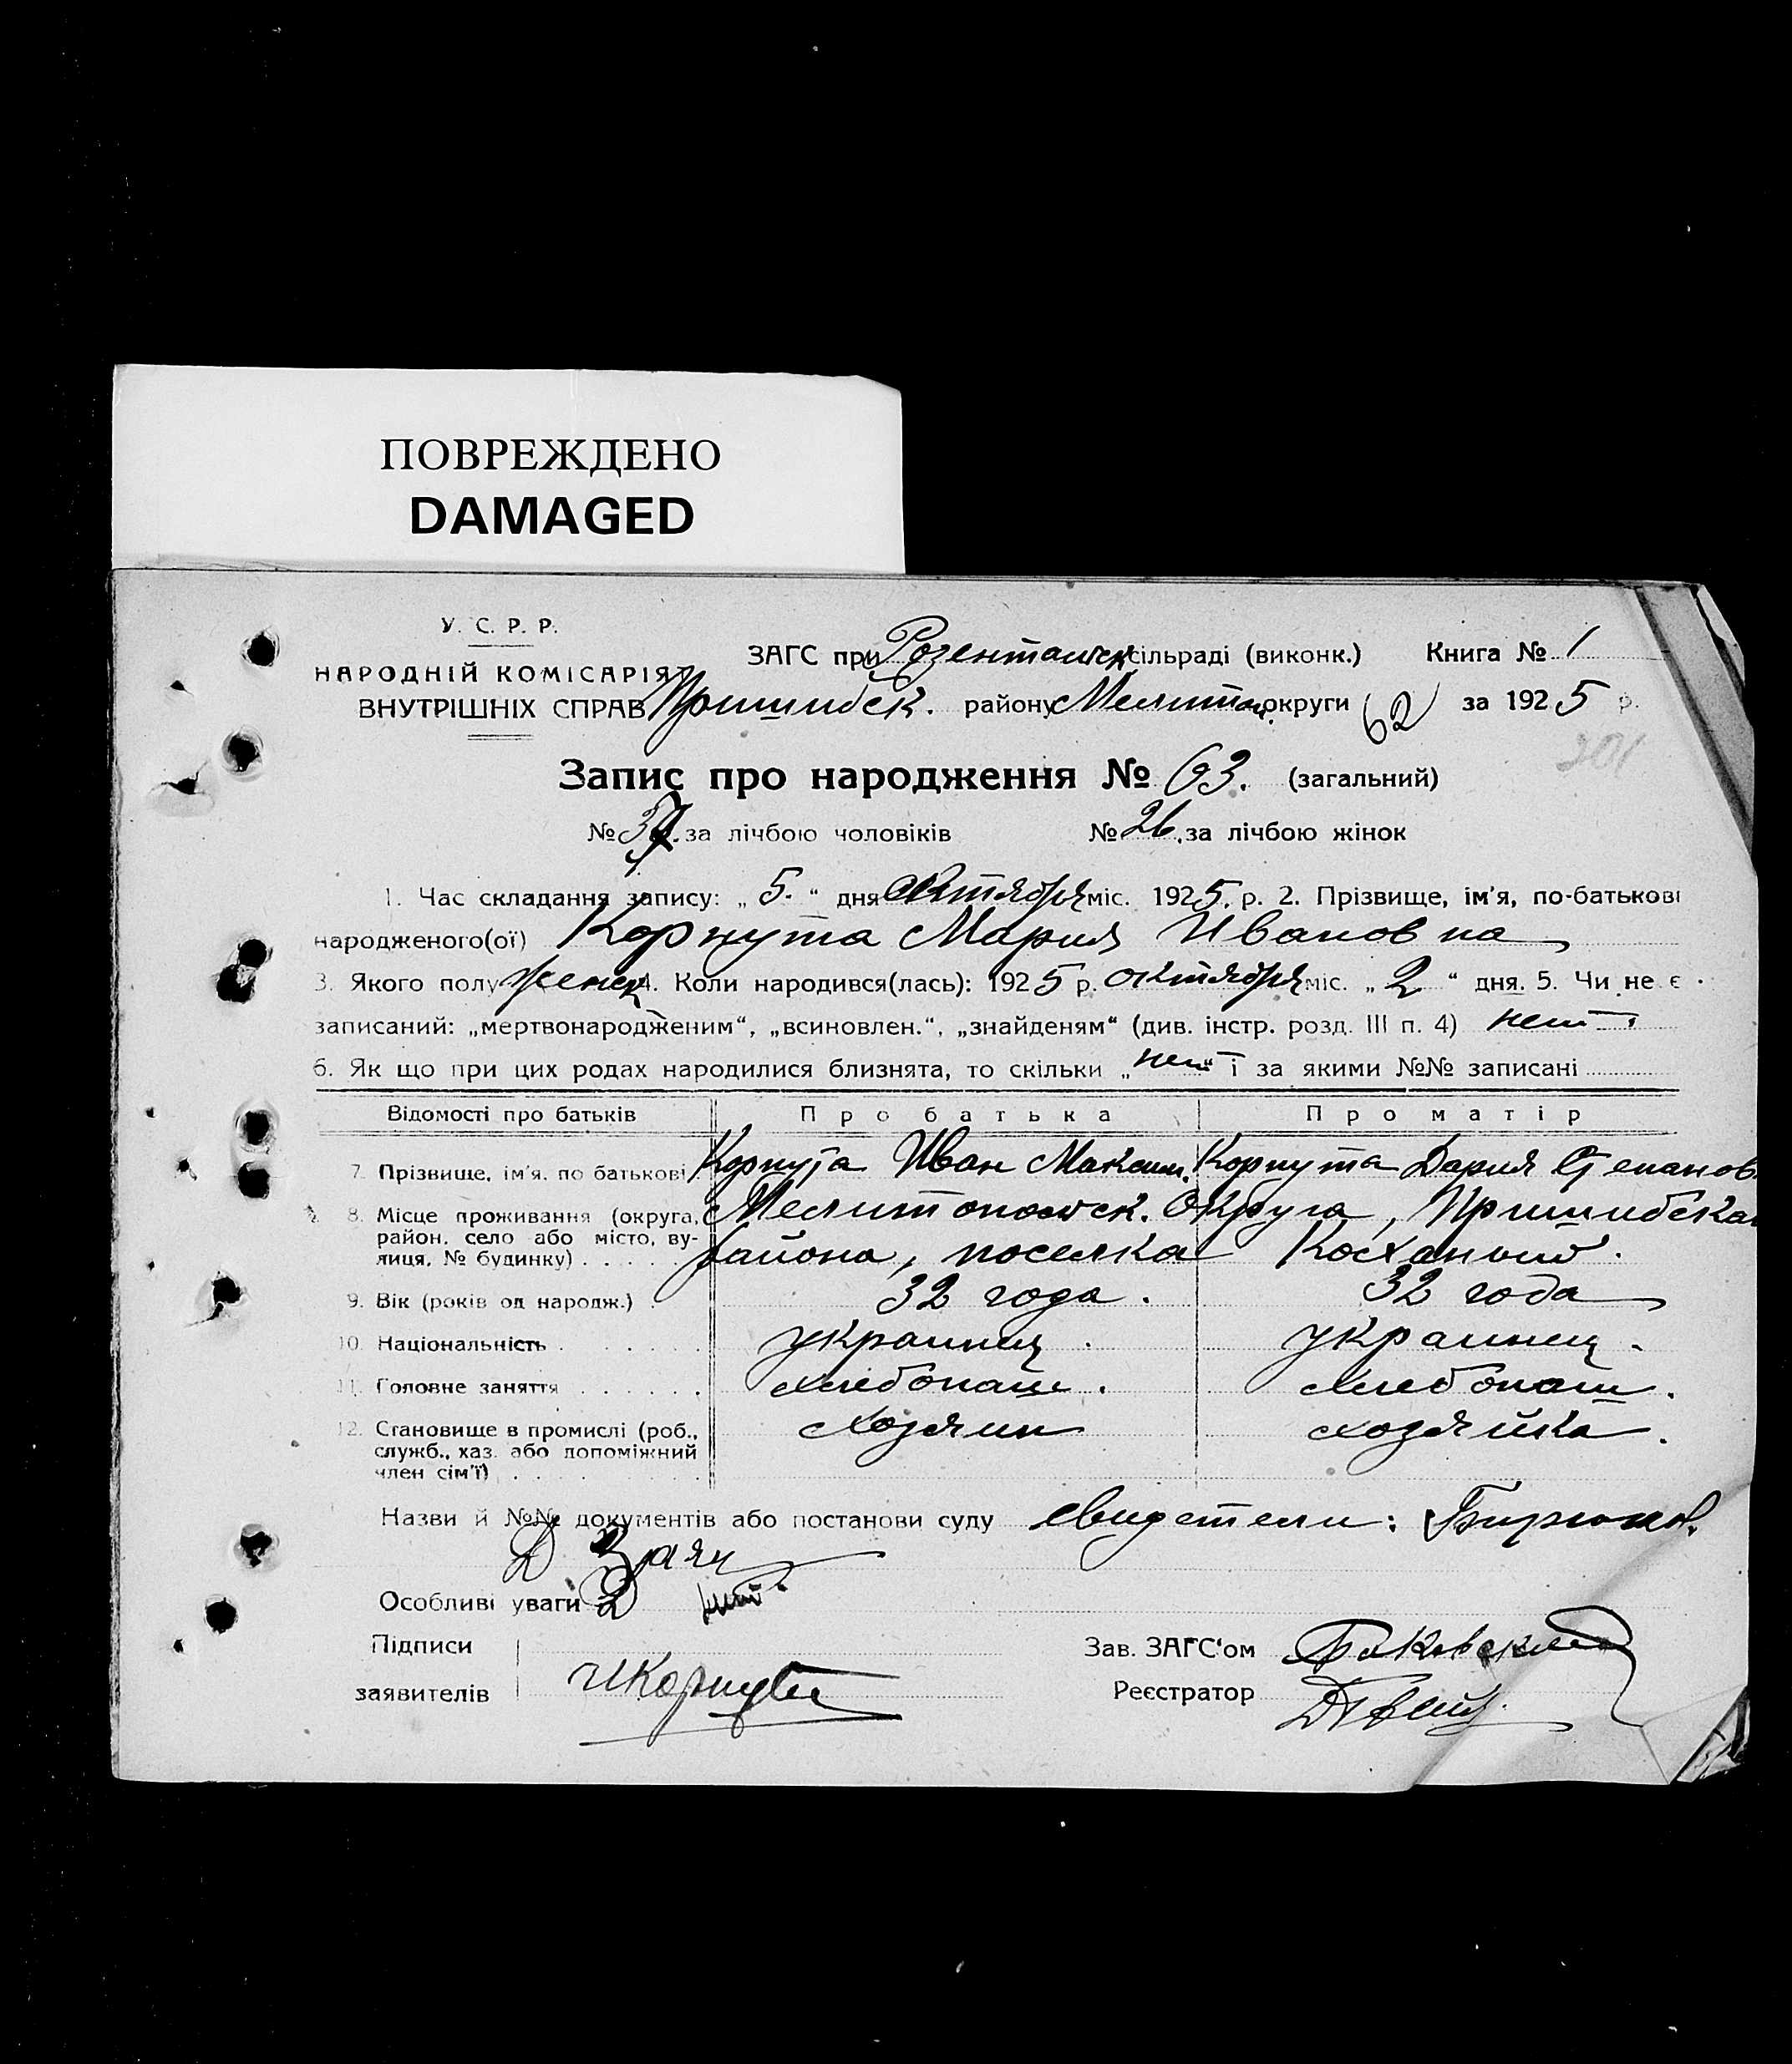 ПОВРЕЖДЕНО
DAMAGED
У. С. Р. Р.
НАРОДНІЙ КОМІСАРІЯТ
ВНУТРІШНІХ СПРАВ
ЗАГС при Розентальск сільраді (виконк.) Книга № 1
Пришибск. району Мелитоп. округи 62 за 1925 р.
201
Запис про народження № 63. (загальний)
№ 37. за лічбою чоловіків № 26. за лічбою жінок
1. Час складання запису: „ 5. “ дня октября міс. 1925. р. 2. Прізвище, ім'я, по-батькові
народженого(ої) Корнута Мария Ивановна
3. Якого полу женск 4. Коли народився(лась): 1925 р. октября міс. „ 2 “ дня. 5. Чи не є
записаний: „мертвонародженим“, „всиновлен.“, „знайденям“ (див. інстр. розд. III п. 4) нет.
6. Як що при цих родах народилися близнята, то скільки „ нет “ і за якими №№ записані
Відомості про батьків Про батька Про матір
7. Прізвище, ім'я, по батькові Корнута Иван Максим. Корнута Дария Степанов
8. Місце проживання (округа, Мелитопольск. Округа, Пришибска
район, село або місто, ву-
лиця, № будинку) района, поселка
9. Вік (років од народж.) 32 года. 32 года
10. Національність украинец. украинец.
11. Головне заняття хлебопаш. хлебопаш.
12. Становище в промислі (роб., хозяин хозяйка.
служб., хаз. або допоміжний
член сім'ї)
Назви й №№ документів або постанови суду свидетели: Бирюков.
Д Заяц
Особливі уваги нет.
Підписи
заявителів И Корнута
Зав. ЗАГС'ом
Реєстратор